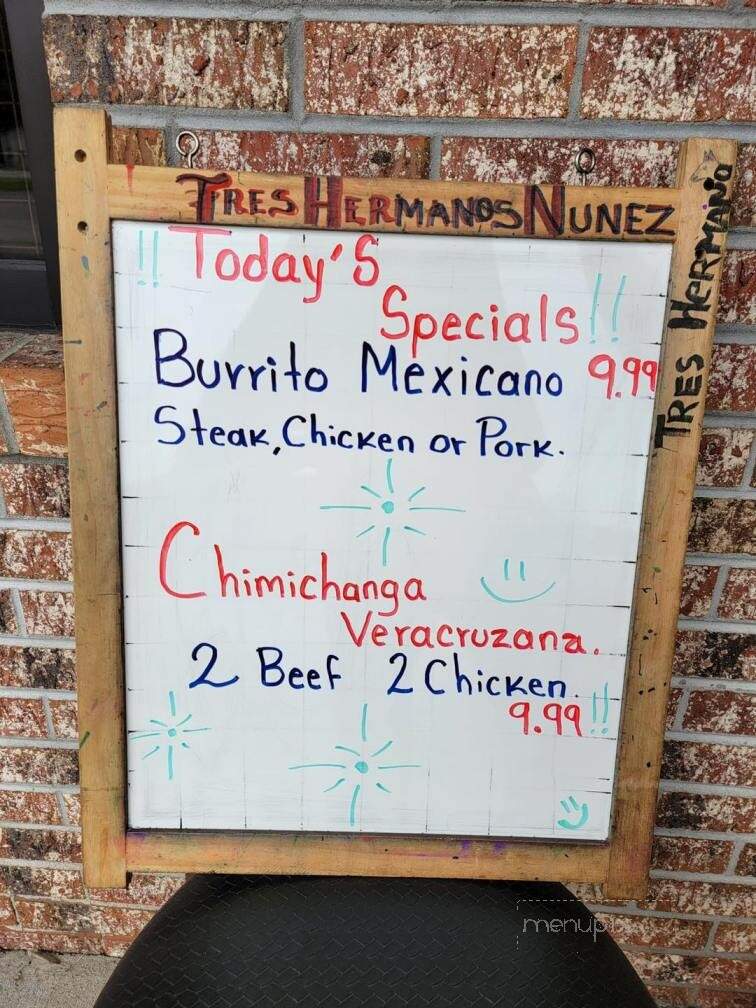 TRES HERMANOS NUNEZ
!! Today'S
Specials !!
Burrito Mexicano 9.99
Steak, Chicken or Pork.
Chimichanga
Veracruzana.
2 Beef 2 Chicken.
9.99 !!
TRES HERMANO